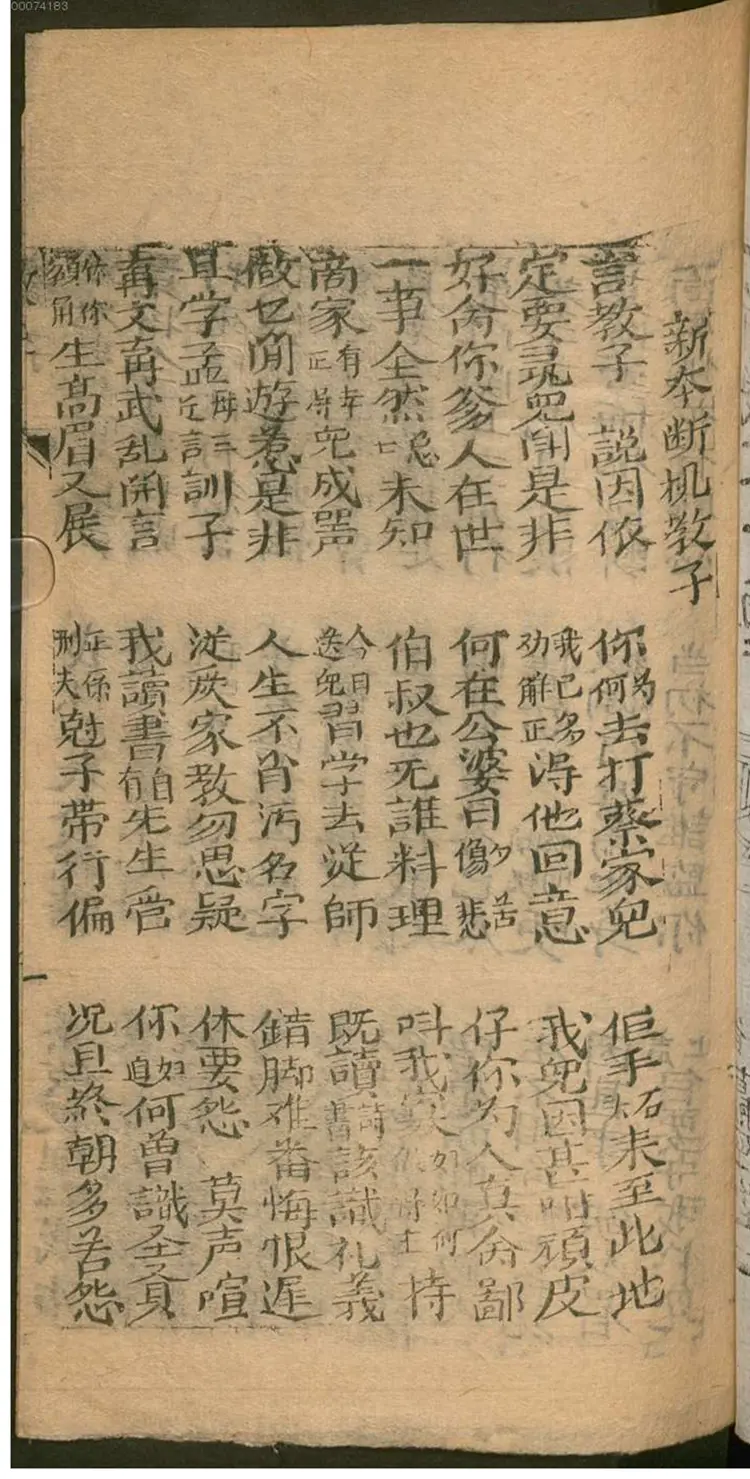 00074183
新本断机教子
言教子 説因依
你為何去打蔡家兒
佢手拓未至此地
定要尋兒閗是非
我已多劝解正淂他回意
我兒因甚咁頑皮
好你爹人在世
何在公婆日夕傷悲苦
仔你为人真鄙
一事全然未知
伯叔也无誰料理
叫我如何持
商家有幸正淂兒成器
今日送兒習学去従師
既讀書該識礼義
做乜閒遊惹是非
人生不肖汚名字
錯脚难番悔恨遲
且学孟母三迁言訓子
従家教勿思疑
休要怨 莫声喧
再文再武乱開言
我讀書自有先生管
你如何曾識圣賢
你額角生髙眉又展
正係刑夫尅子带行偏
况且終朝多苦怨